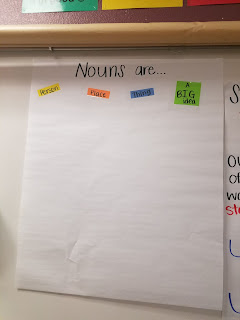 Nouns are...
Person
Place
Thing
A
BIG
idea
S
of
wo